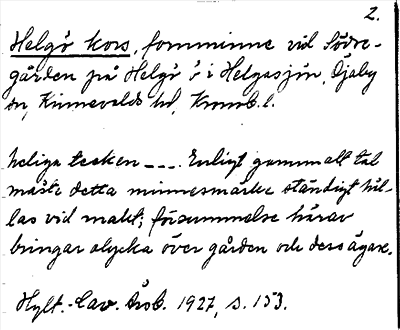 2.
Helgö kors, fornminne vid Södre-
gården på Helgö i Helgasjön, Öjaby
sn, Kinnevalds hd, Kronob. l.
heliga tecken ---. Enligt gammalt tal
måste detta minnesmärke ständigt hål-
las vid makt; försummelse härav
bringar olycka över gården och dess ägare.
Hylt.-Cav. Årsb. 1927, s. 153.